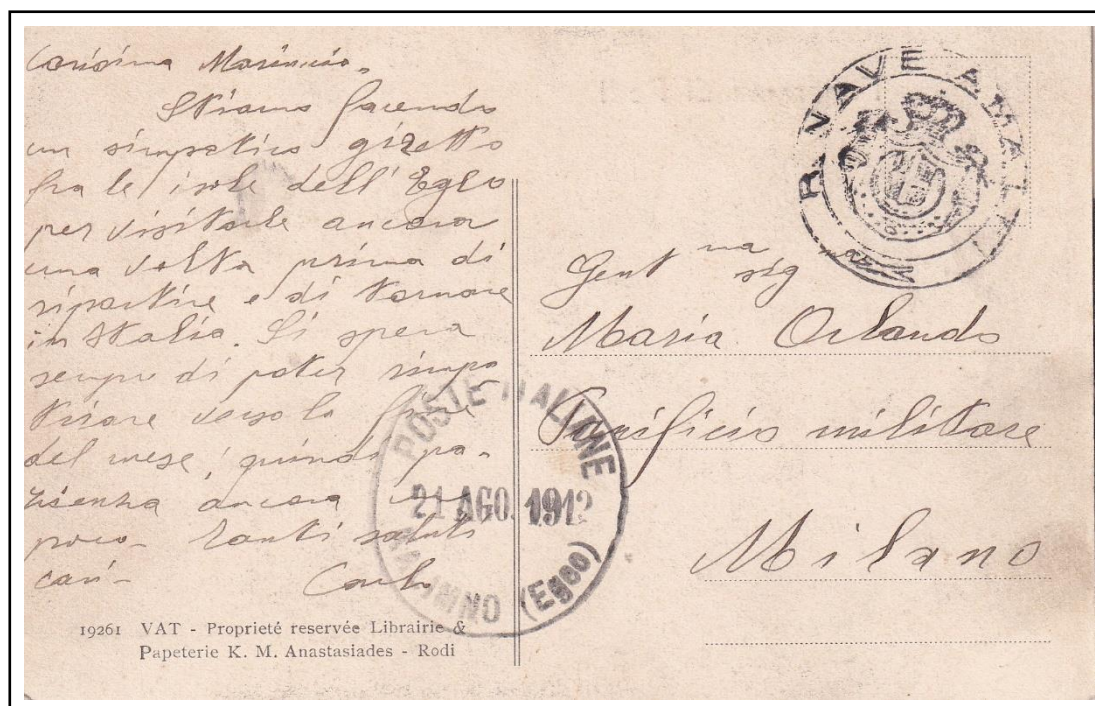 Carissima Mariuccia.
Stiamo facendo
un simpatico giretto
fra le isole dell'Egeo
per visitarle ancora
una volta prima di
ripartire e di tornare
in Italia. Si spera
sempre di poter rimpa
triare verso la fine
del mese; quindi pa-
zienza ancora un
poco. Tanti saluti
cari- Carlo
19261 VAT - Proprieté reservée Librairie &
Papeterie K. M. Anastasiades - Rodi
R. NAVE AMALFI
Gent ma sig
Maria Orlando
Panificio militare
Milano
POSTE ITALIANE
21 AGO. 1912
KALIMNO (Egeo)